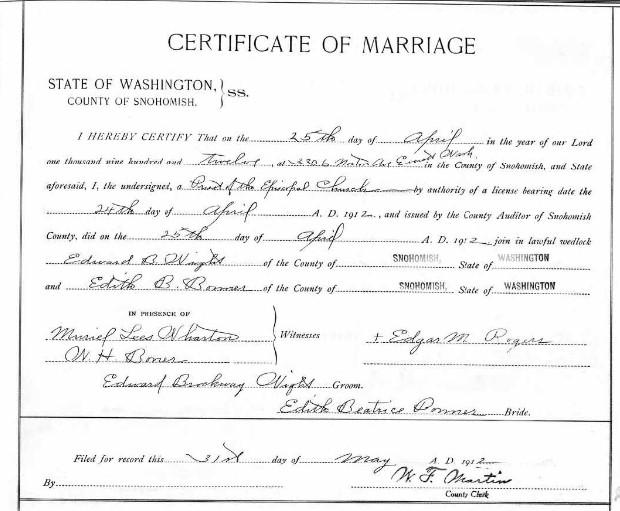 CERTIFICATE OF MARRIAGE
STATE OF WASHINGTON, } SS.
COUNTY OF SNOHOMISH.
I HEREBY CERTIFY That on the 25th day of April in the year of our Lord
one thousand nine hundred and twelve, at 2306 Ave Everett Wash. in the County of Snohomish, and State
aforesaid, I, the undersigned, a Priest of the Episcopal Church by authority of a license bearing date the
24th day of April A. D. 1912, and issued by the County Auditor of Snohomish
County, did on the 25th day of April A. D. 1912 join in lawful wedlock
Edward B. Wight of the County of SNOHOMISH, State of WASHINGTON
and Edith B. of the County of SNOHOMISH, State of WASHINGTON
IN PRESENCE OF
Muriel Lees Wharton } Witnesses + Edgar M. Rogers
W. H.
Edward Brockway Wight Groom.
Edith Beatrice Bride.
Filed for record this 31st day of May A. D. 1912
By W. F. Martin
County Clerk